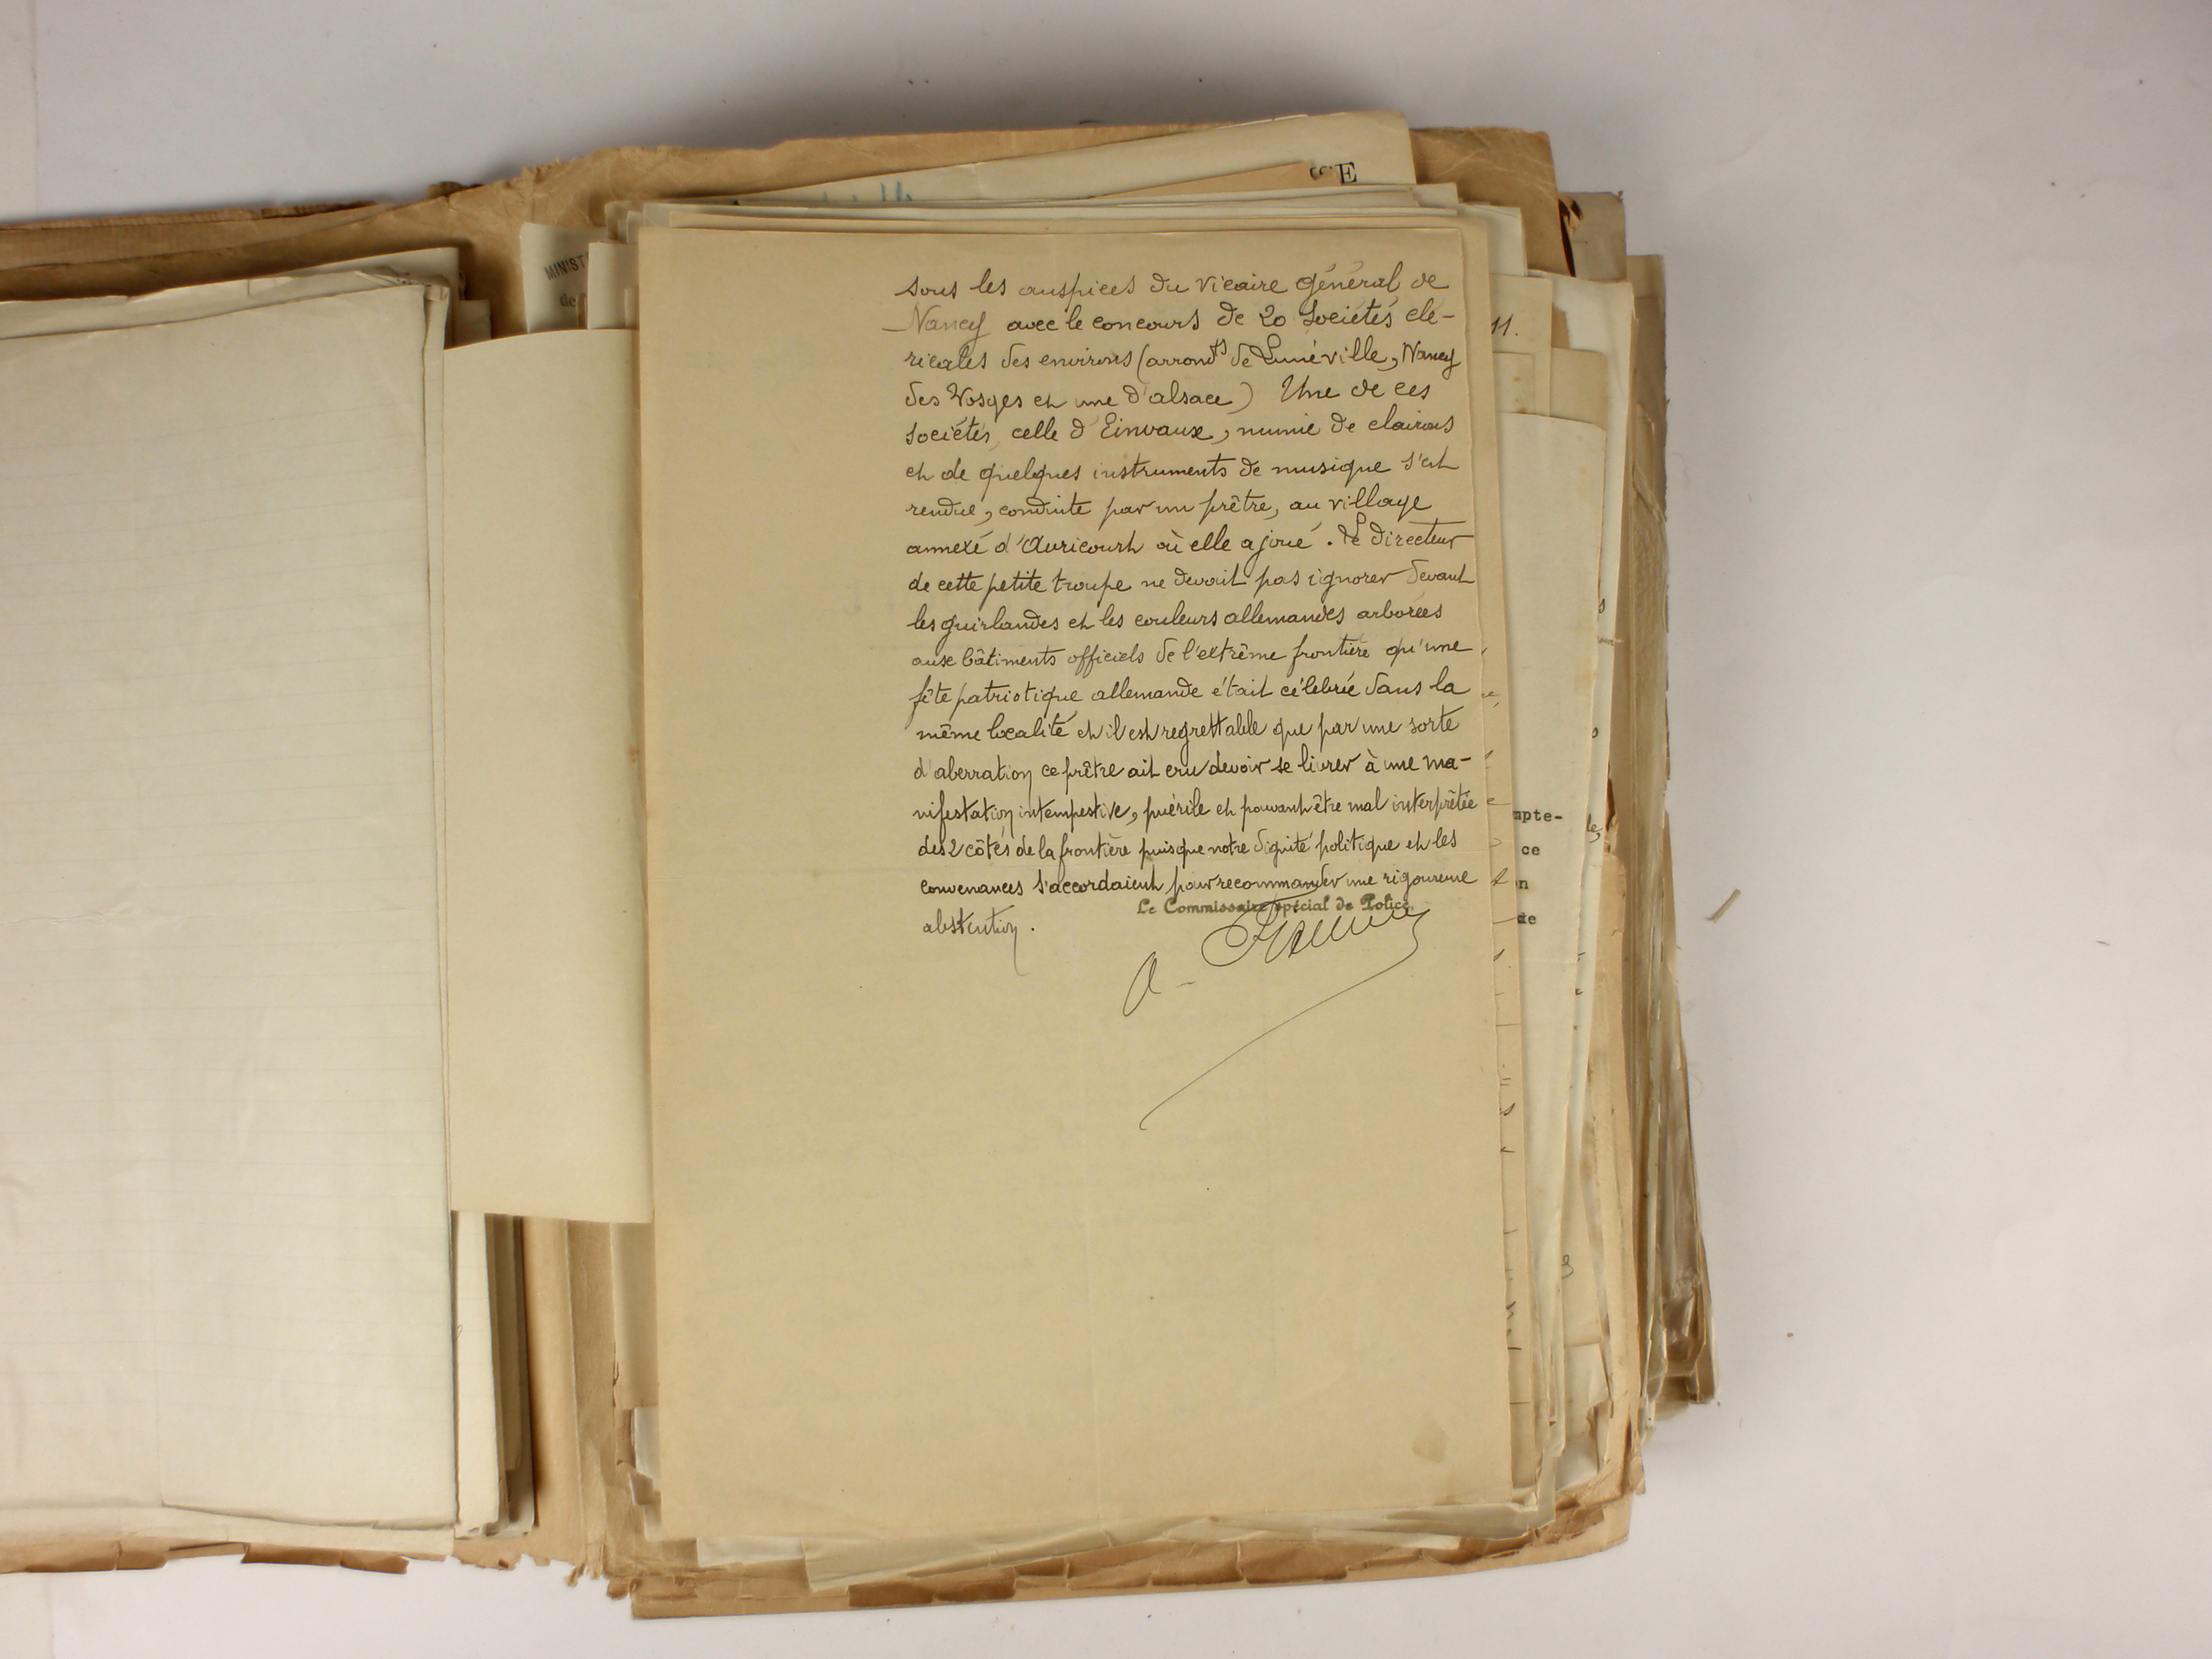 sous les auspices du vicaire général de
Nancy avec le concours de 20 Sociétés clé-
ricales des environs (arrondts de Lunéville, Nancy
des Vosges et une d'alsace) Une de ces
sociétés, celle d'Einvaux, munie de clairons
et de quelques instruments de musique s'est
rendue, conduite par un prêtre, au village
annexé d'Avricourt où elle a joué. Le directeur
de cette petite troupe ne devait pas ignorer devant
les guirlandes et les couleurs allemandes arborées
aux bâtiments officiels de l'extrême frontière qu'une
fête patriotique allemande était célébrée dans la
même localité et il est regrettable que par une sorte
d'aberration ce prêtre ait cru devoir se livrer à une ma-
nifestation intempestive, puérile et pouvant être mal interprétée
des 2 côtés de la frontière puisque notre dignité politique et les
convenances s'accordaient pour recommander une rigoureuse
abstention.
Le Commissaire spécial de Police,
MINIST
de
E
11.
mpte-
ce
on
de
le,